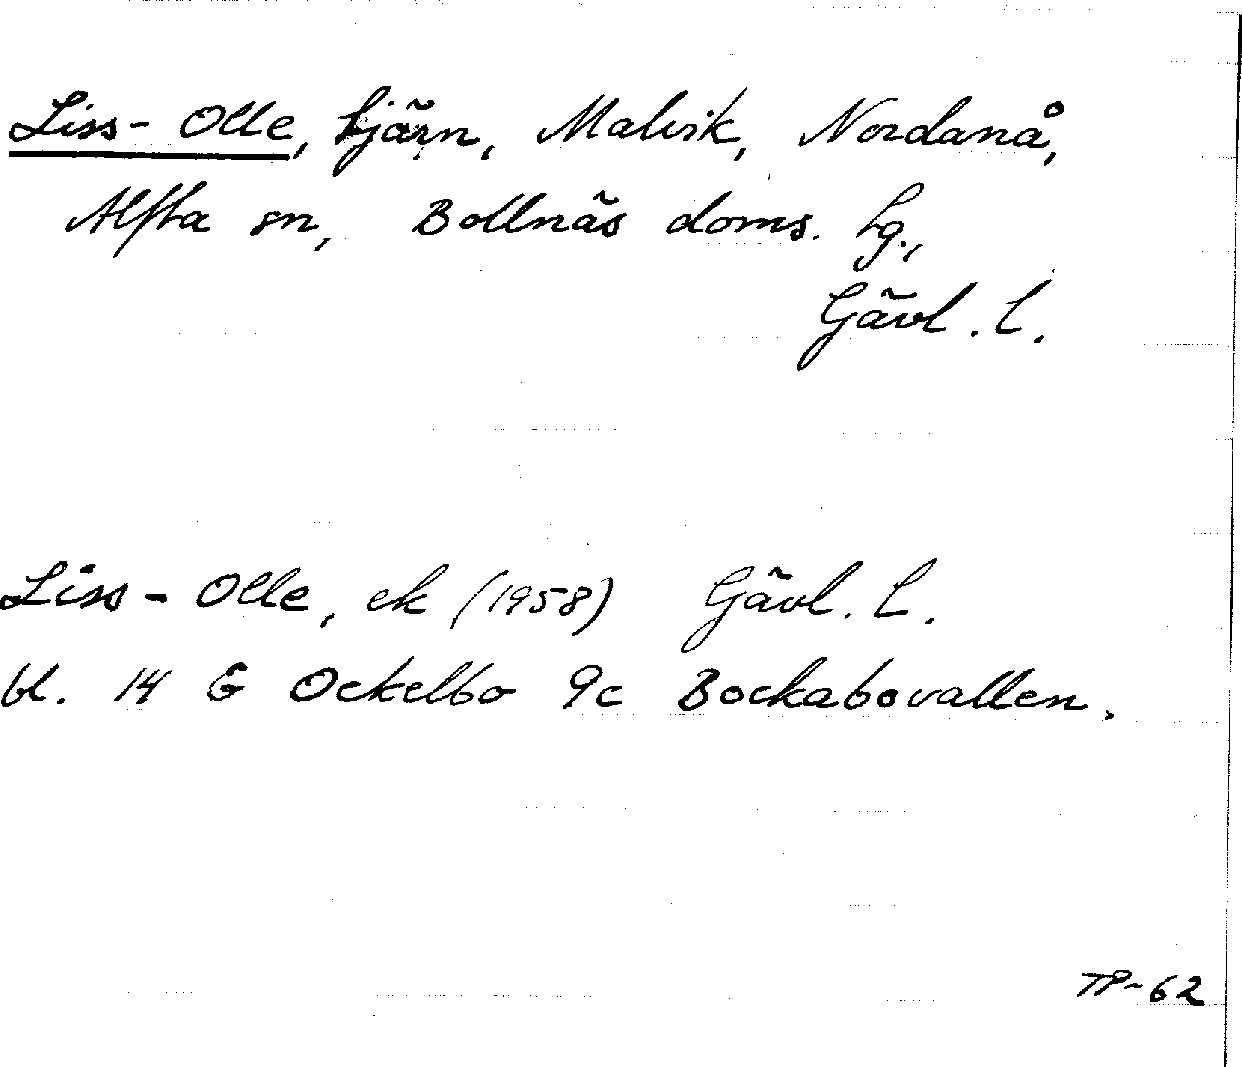 Liss-Olle, tjärn, Malvik, Nordanå,
Alfta sn, Bollnäs doms. tg.,
Gävl. l.
Liss-Olle, ek (1958) Gävl. L.
bl. 14 G Ockelbo 9c Bockabovallen.
TP-62